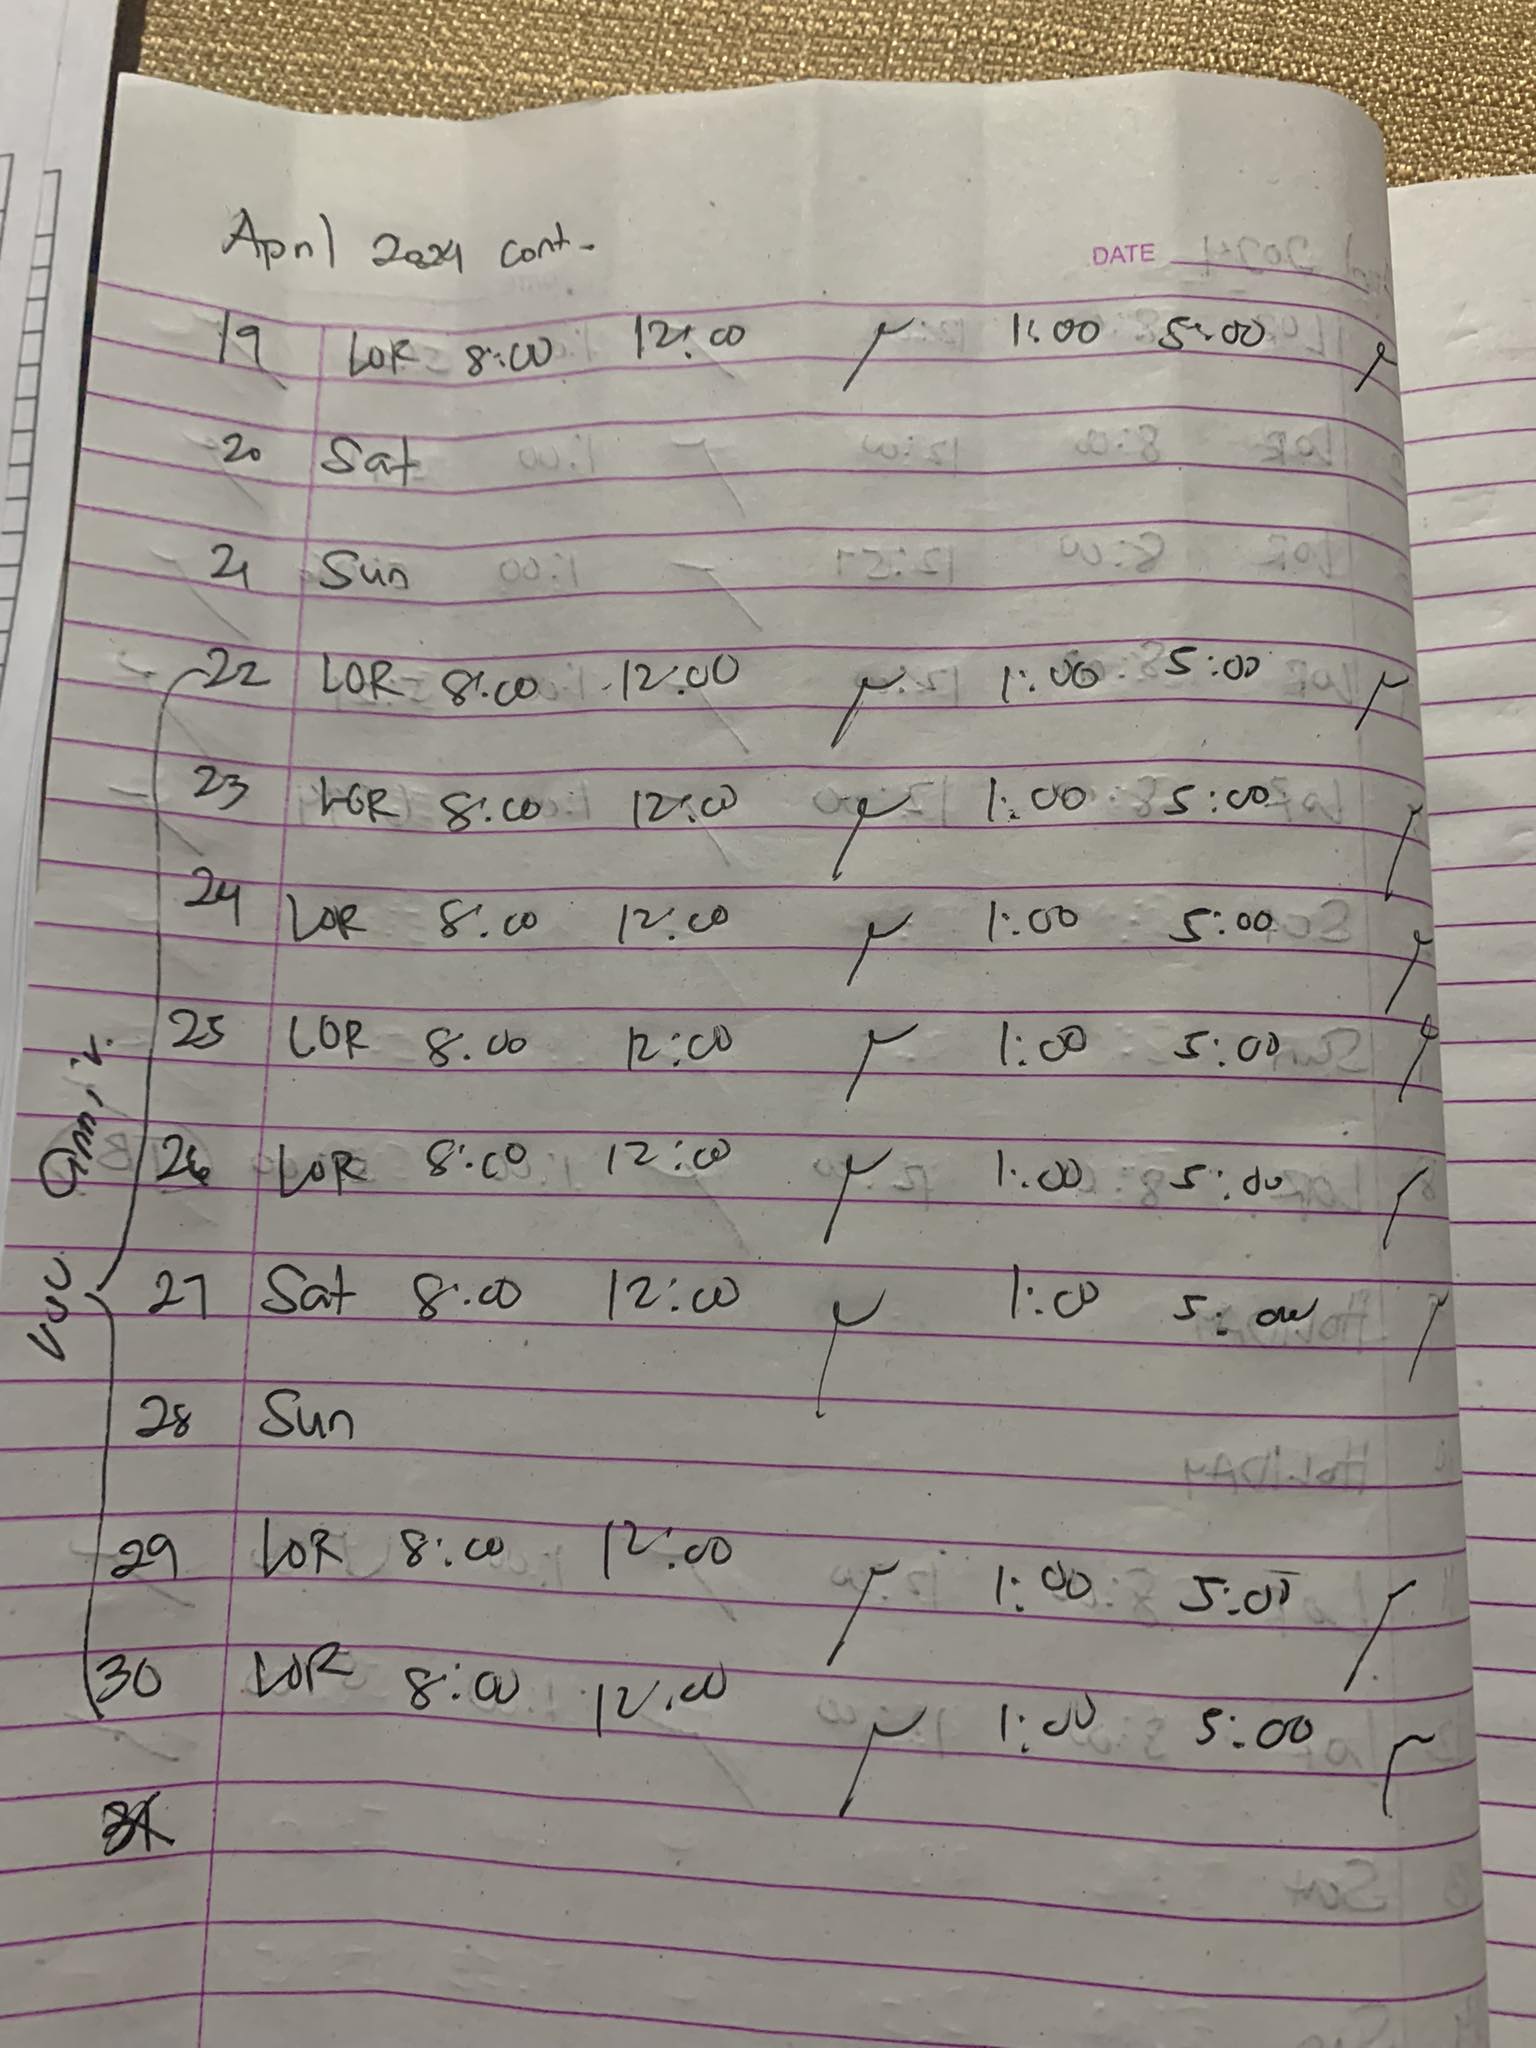 April 2024 cont-
DATE
19 LOR 8:00 12:00 1:00 5:00
20 Sat
21 Sun
22 LOR 8:00 12:00 1:00 5:00
23 LOR 8:00 12:00 1:00 5:00
24 LOR 8:00 12:00 1:00 5:00
25 LOR 8:00 12:00 1:00 5:00
26 LOR 8:00 12:00 1:00 5:00
27 Sat 8:00 12:00 1:00 5:00
28 Sun
29 LOR 8:00 12:00 1:00 5:00
30 LOR 8:00 12:00 1:00 5:00
31